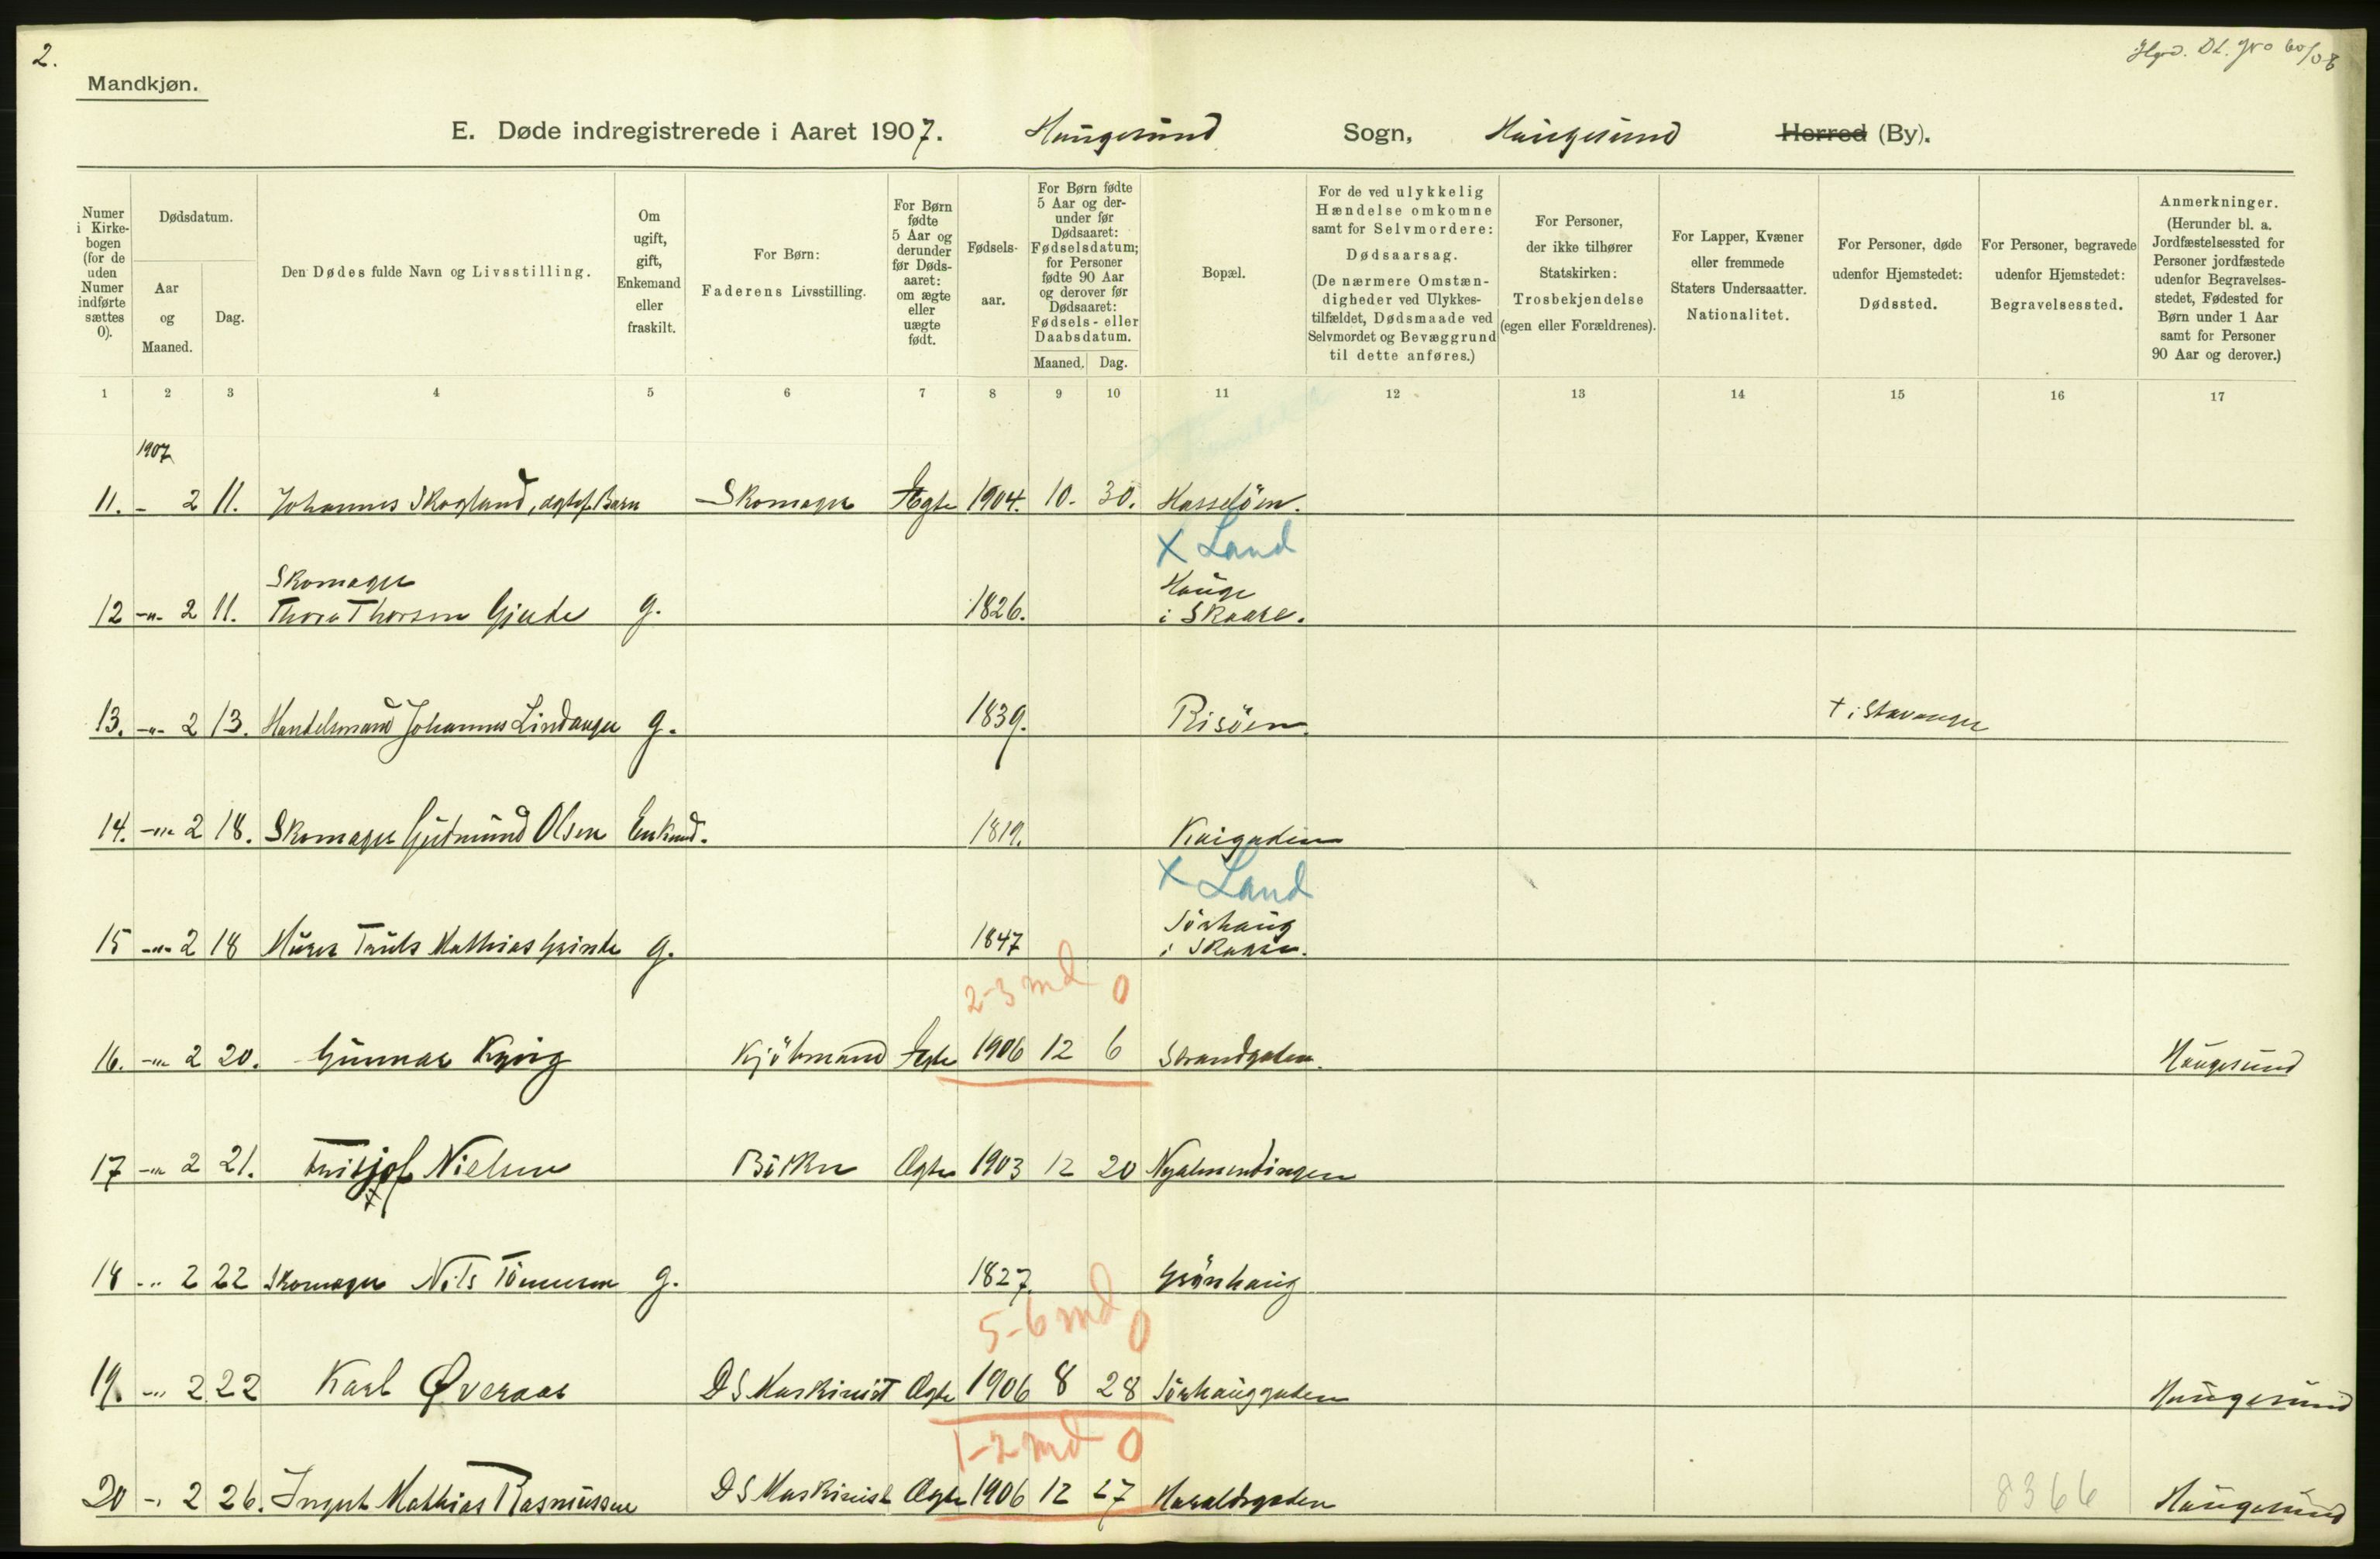 2.
Mandkjøn.
E. Døde indregistrerede i Aaret 1907. Haugesund Sogn, Haugesund Herred (By).
Numer i Kirkebogen (for de uden Numer indførte sættes 0).
Dødsdatum.
Aar og Maaned.
Dag.
Den Dødes fulde Navn og Livsstilling.
Om ugift, gift, Enkemand eller fraskilt.
For Børn: Faderens Livsstilling.
For Børn fødte 5 Aar og derunder før Dødsaaret: om ægte eller uægte født.
Fødselsaar.
For Børn fødte 5 Aar og derunder før Dødsaaret: Fødselsdatum; for Personer fødte 90 Aar og derover før Dødsaaret: Fødsels- eller Daabsdatum.
Maaned. Dag.
Bopæl.
For de ved ulykkelig Hændelse omkomne samt for Selvmordere: Dødsaarsag. (De nærmere Omstændigheder ved Ulykkestilfældet, Dødsmaade ved Selvmordet og Bevæggrund til dette anføres.)
For Personer, der ikke tilhører Statskirken: Trosbekjendelse (egen eller Forældrenes).
For Lapper, Kvæner eller fremmede Staters Undersaatter. Nationalitet.
For Personer, døde udenfor Hjemstedet: Dødssted.
For Personer, begravede udenfor Hjemstedet: Begravelsessted.
Anmerkninger. (Herunder bl. a. Jordfæstelsessted for Personer jordfæstede udenfor Begravelsesstedet, Fødested for Børn under 1 Aar samt for Personer 90 Aar og derover.)
1 2 3 4 5 6 7 8 9 10 11 12 13 14 15 16 17
1907
11. - 2 11. Johannes Skogland, Barn Skomager Ægte 1904. 10. 30. Hasseløen.
X Land
Skomager Hauge
12 -"- 2 11. Thore Thorsen Gjerde g. 1826. i Skaare.
13. -"- 2 13. Handelsmand Johannes Lindanger g. 1839. Risöen. † i Stavanger
14. -"- 2 18. Skomager Gudmund Olsen Enkmd. 1819. Kaigaden
X Land
Sörhaug
15 -"- 2 18 Murer Truls Mathias Grinde g. 1847 i Skaare.
2-3 md 0
16. -"- 2 20. Gunnar Kyvig Kjöbmand Ægte 1906 12 6 Strandgaden. Haugesund
17 -"- 2 21. Fritjof Nielsen Bödker Ægte 1903 12 20 Nyalmendingen
18 -"- 2 22 Skomager Nils Tönnesen g. 1827. Grönhaug
5-6 md 0
19. -"- 2 22 Karl Øveraas DS Maskinist Ægte 1906 8 28 Sörhauggaden Haugesund
1-2 md 0
20 -"- 2 26. Ingvt Mathias Rasmussen DS Maskinist Ægte 1906 12 27 Haraldsgaden 8366 Haugesund